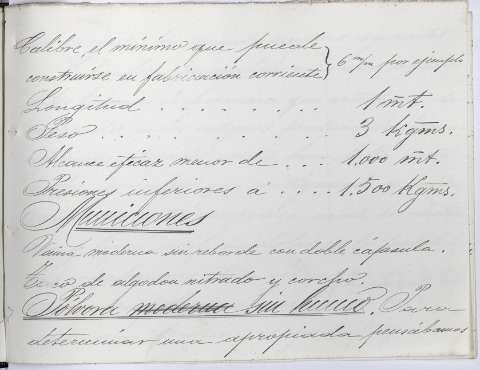 Calibre, el mínimo que puede } 6 m/m por ejemplo
construirse en fabricación corriente
Longitud . . . . . . . . 1 mt.
Peso . . . . . . . . . 3 Kgms.
Alcance eficaz menor de . . . 1.000 mt.
Presiones inferiores á . . . . 1.500 Kgms.
Municiones
Vaina moderna sin reborde con doble cápsula.
de algodon nitrado y corcho.
Pólvora moderna sin humo. Para
determinar una apropiada pensábamos